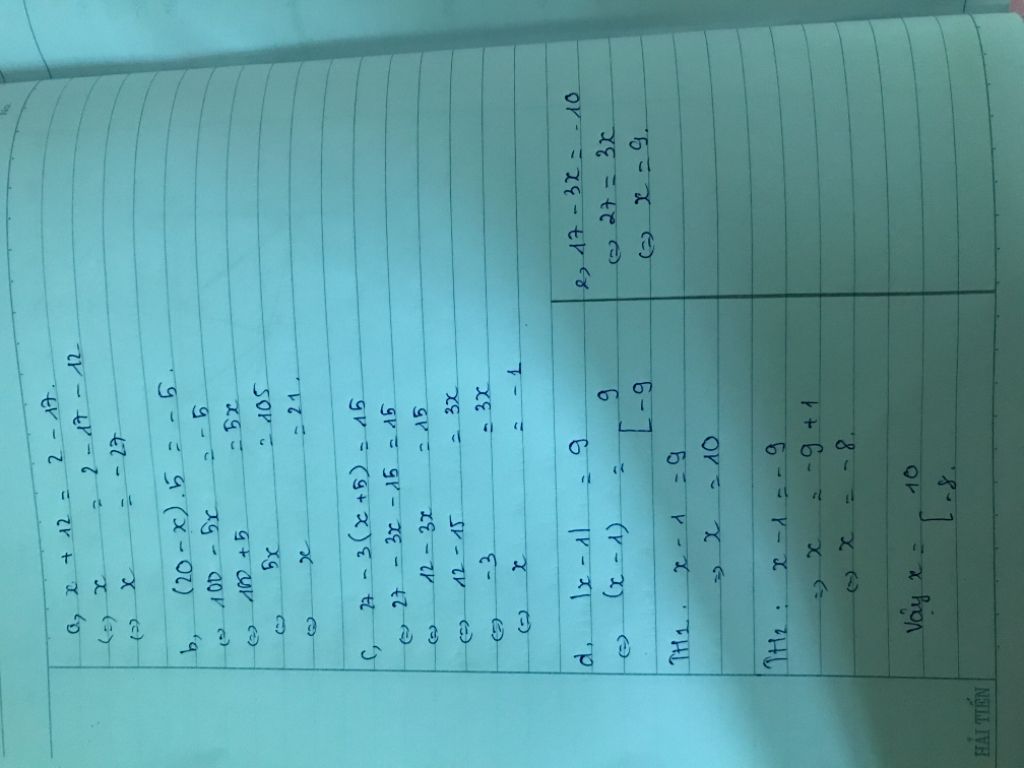 a, x + 12 = 2 - 17.
(=) x = 2 - 17 - 12
(=) x = - 27
b, (20 - x) . 5 = - 5.
(=) 100 - 5x = - 5
(=) 100 + 5 = 5x
(=) 5x = 105
(=) x = 21.
c, 27 - 3(x + 5) = 15
(=) 27 - 3x - 15 = 15
(=) 12 - 3x = 15
(=) 12 - 15 = 3x
(=) - 3 = 3x
(=) x = - 1
d, |x - 1| = 9
(=) (x - 1) = [ 9
- 9
TH1: x - 1 = 9
=) x = 10
TH2: x - 1 = - 9
=) x = - 9 + 1
(=) x = - 8.
Vậy x = [ 10
- 8.
e, 17 - 3x = - 10
(=) 27 = 3x
(=) x = 9.
HẢI TIẾN